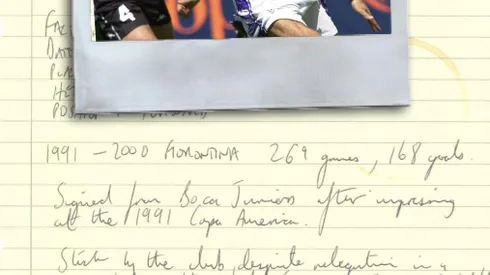 4
DAT
PLA
HE
1991 – 2000 FIORENTINA 269 games, 168 goals.
Signed from Boca Juniors after impressing
at the 1991 Copa America.
Stuck by the club, despite relegation in a